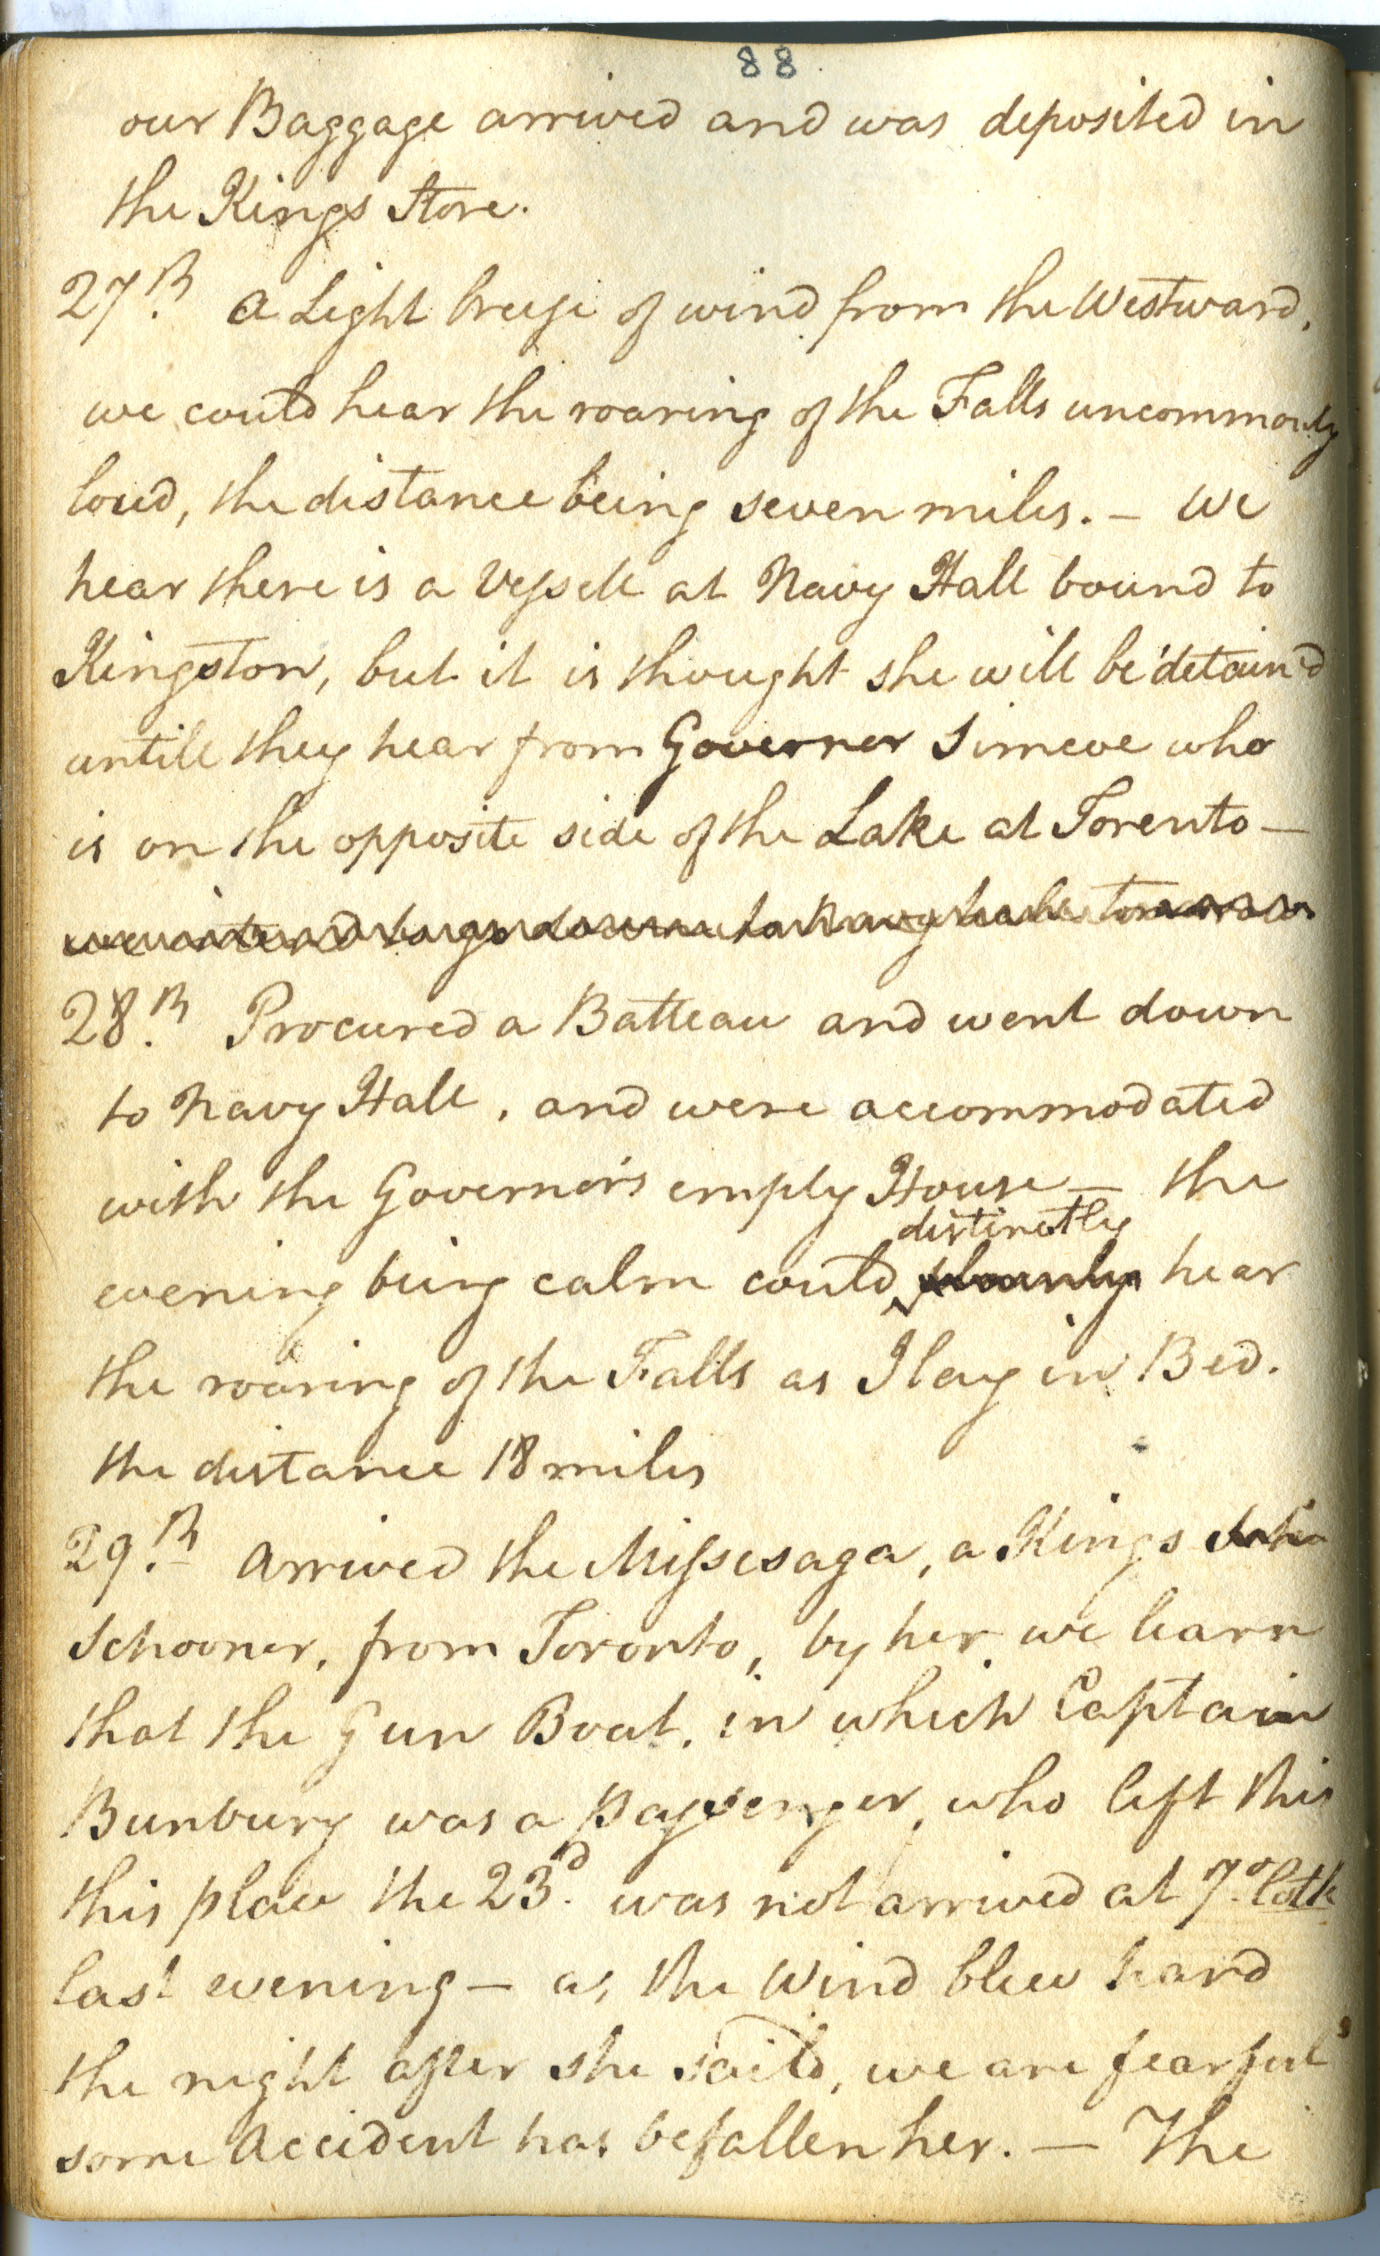 88
our Baggage arrived and was deposited in
the Kings Store.
27th. a Light breese of wind from the Westward,
we could hear the roaring of the Falls uncommonly
loud, the distance being seven miles. – We
hear there is a Vessell at Navy Hall bound to
Kingston, but it is thought she will be detain'd
untill they hear from Governor Simcoe who
is on the opposite side of the Lake at Torento –
we intend to go down to Navy hall tomorrow
28th. Procured a Batteau and went down
to Navy Hall, and were accommodated
with the Governor's empty House – the
distinctly
evening being calm could hear
the roaring of the Falls as I lay in Bed.
the distance 18 miles
29th. Arrived the Missesaga, a Kings
Schooner, from Toronto, by her we learn
that the Gun Boat, in which Captain
Bunbury was a passenger, who left this
this place the 23d. was not arrived at 7 oClock
last evening – as the Wind blew hard
the night after she saild, we are fearful
some Accident has befallen her. – The